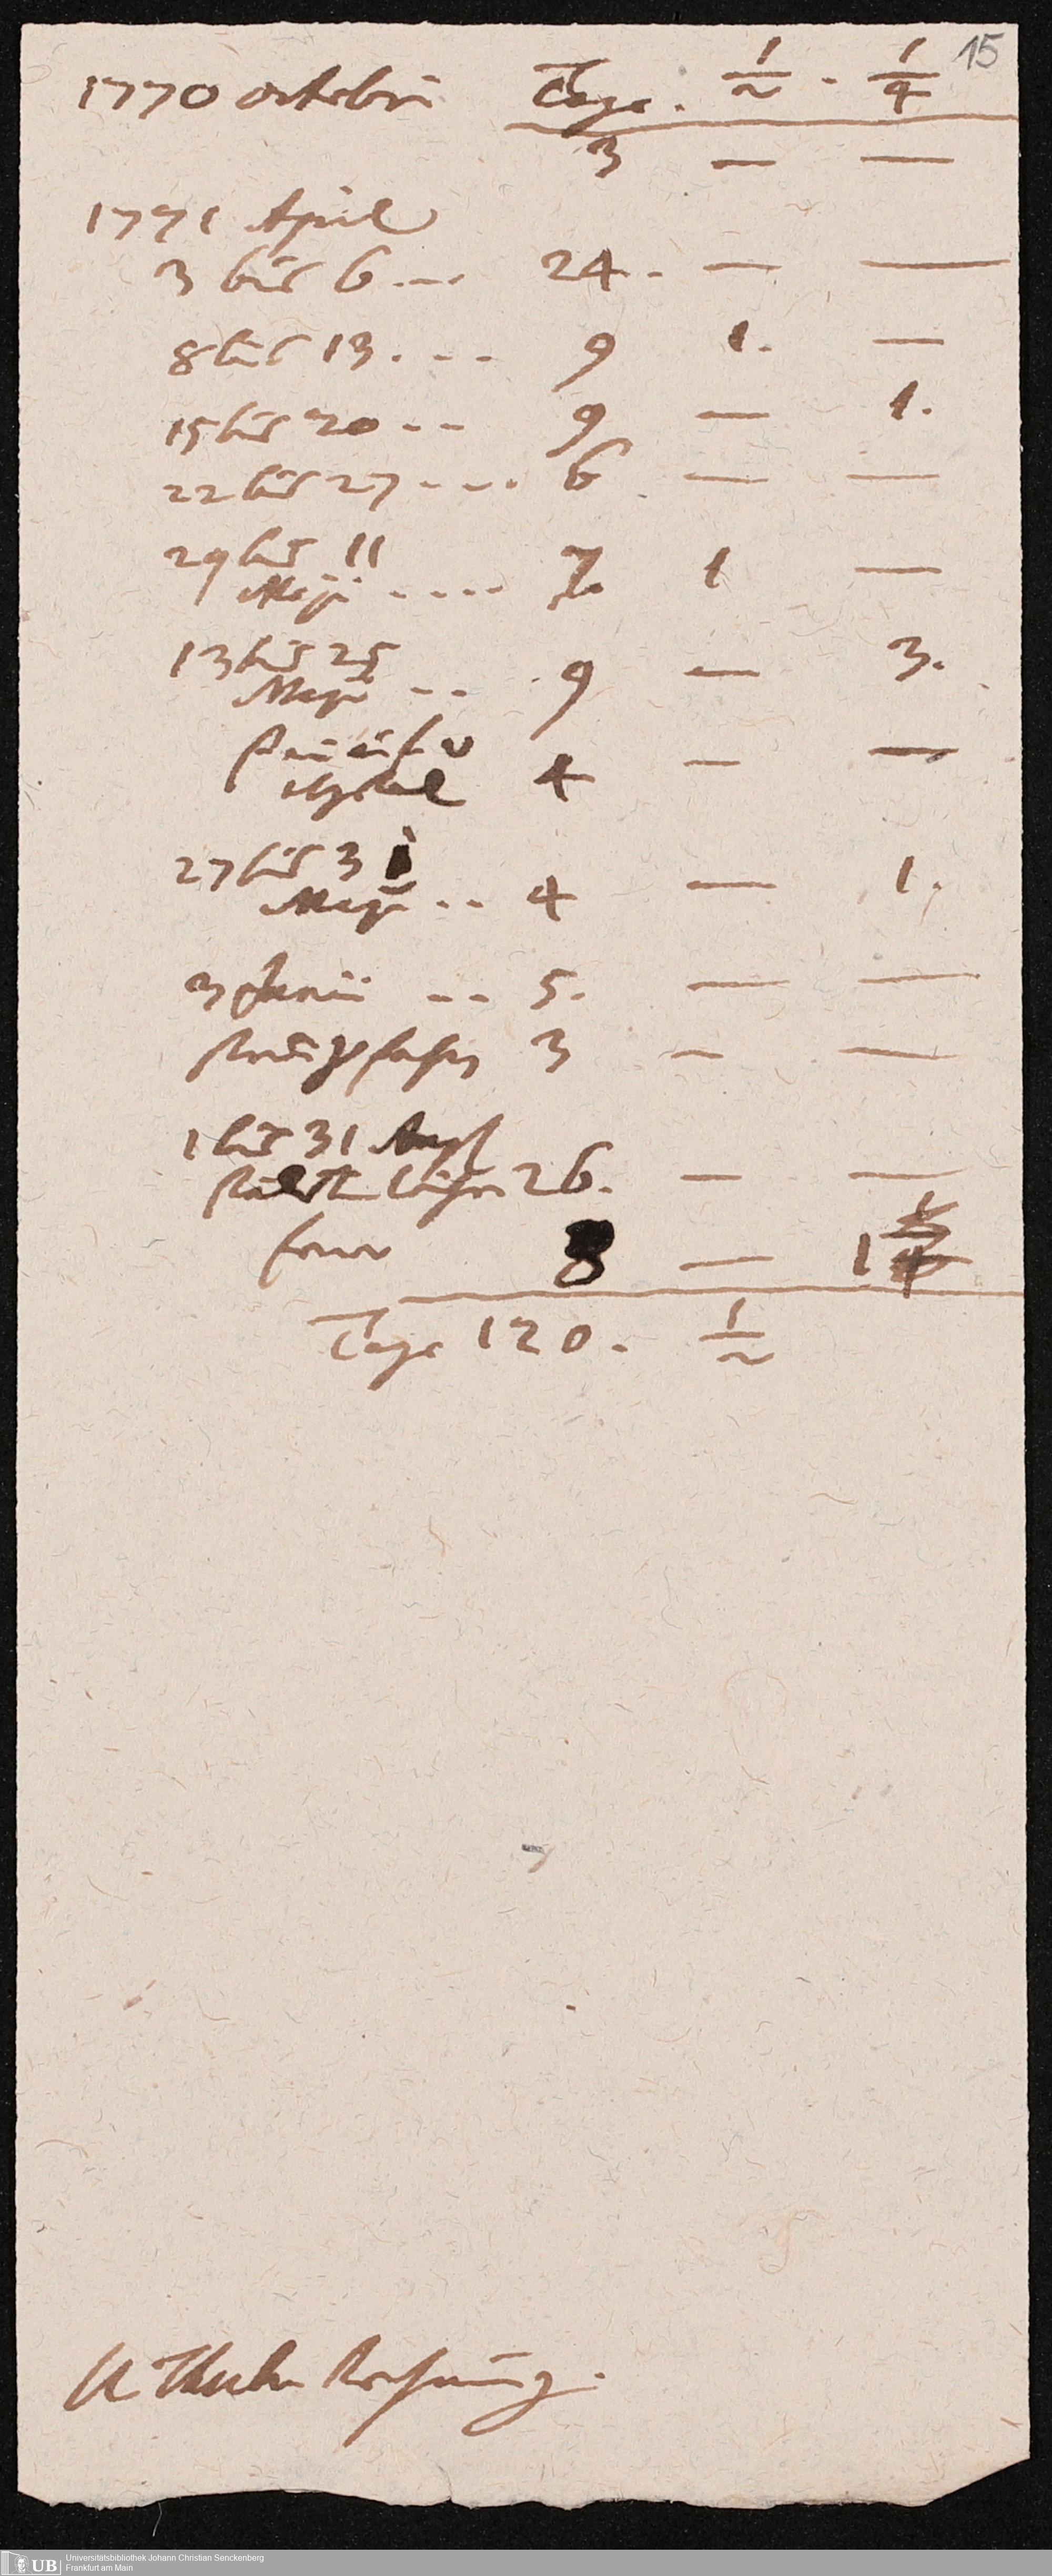 15
1770 octobri Tage. 1/2 . 1/4
3 — —
1771 April
3 bis 6 ... 24 . — —
8 bis 13 . . . . 9 1. —
15 bis 20 . . . 9 — 1.
22 bis 27 . . . . 6 . — —
29 bis 11
Maÿ . . . . . 7 1 —
13 bis 25
Maÿ . . . 9 — 3.
4 — —
27 bis 31
Maÿ . . . 4 — 1.
3 Junii . . . 5. — —
3 — —
1 bis 31 Augst
26. — —
8 — 1
Tage 120. 1/2
Rechnung.
UB Universitätsbibliothek Johann Christian Senckenberg
Frankfurt am Main